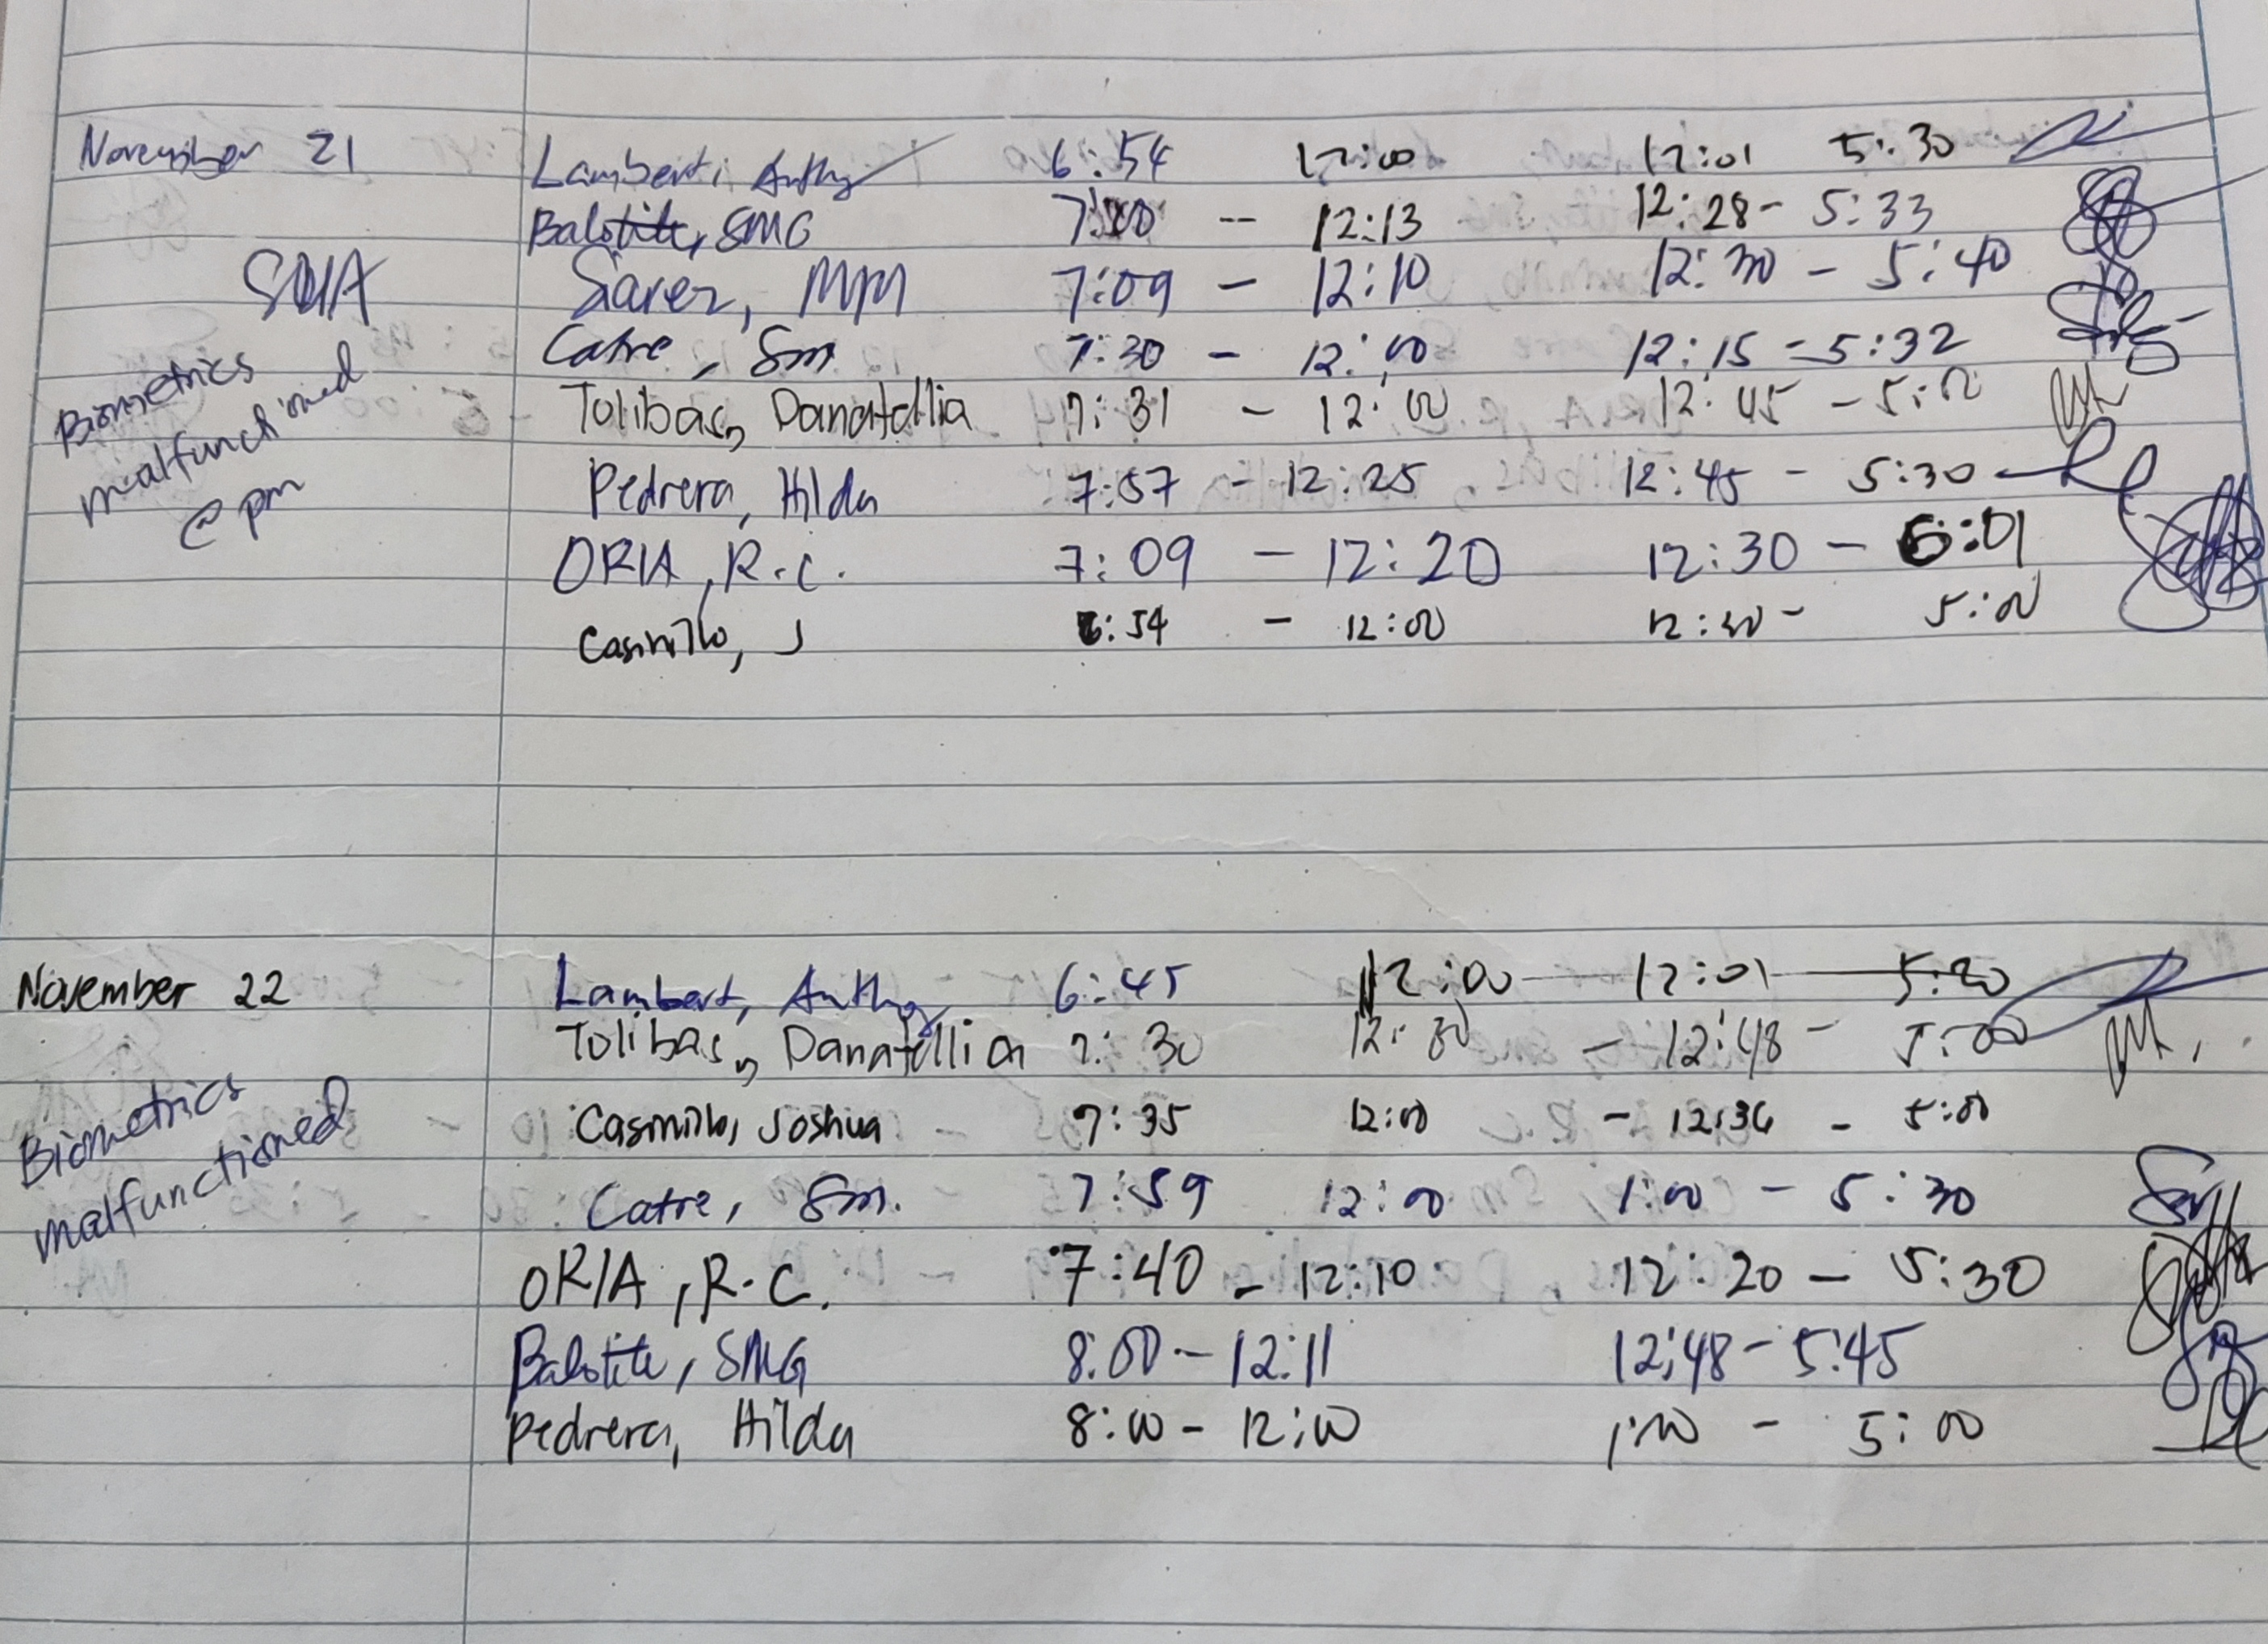 November 21 Lambert, Anthy 6:54 12:00 12:01 5:30
Balotite, SMG 7:00 -- 12:13 12:28 - 5:33
Siarez, MM 7:09 - 12:10 12:30 - 5:40
Catre, Sm 7:30 - 12:00 12:15 - 5:32
Biometrics malfunctioned @ pm
Tolibas, Danatellia 7:31 - 12:00 12:45 - 5:00
Pedrera, Hilda 7:57 - 12:25 12:45 - 5:30
ORIA, R.C. 7:09 - 12:20 12:30 - 5:01
Casinillo, J 6:54 - 12:00 12:30 - 5:00
November 22 Lambert, Anthy 6:45 12:00 12:01 5:30
Tolibas, Danatellia 7:30 12:30 - 12:48 - 5:00
Biometrics malfunctioned
Casinillo, Joshua 7:35 12:00 - 12:36 - 5:00
Catre, Sm. 7:59 12:00 1:00 - 5:30
ORIA, R.C. 7:40 - 12:10 12:20 - 5:30
Balotite, SMG 8:00 - 12:11 12:48 - 5:45
Pedrera, Hilda 8:00 - 12:00 1:00 - 5:00